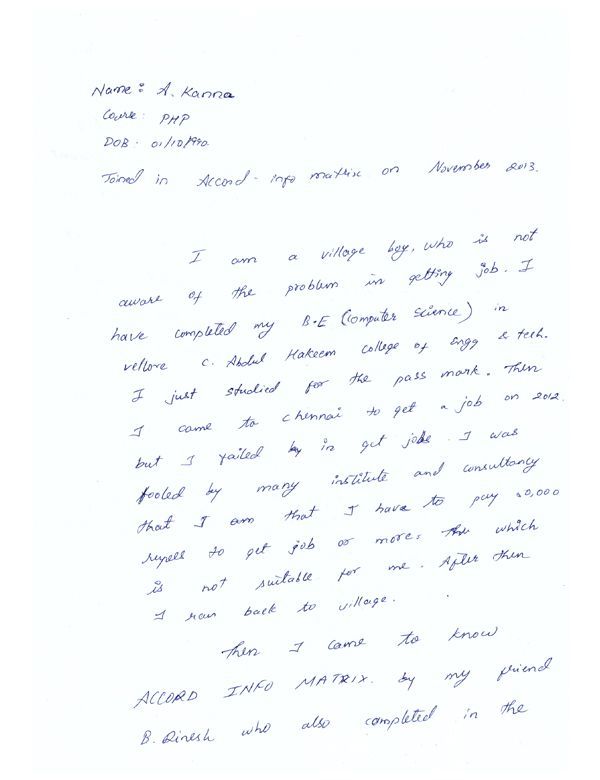 Name: A. Kanna
Course: PHP
DOB: 01/10/1990
Joined in Accord-info matrix on November 2013.
I am a village boy, who is not
aware of the problem in getting job. I
have completed my B.E (computer science) in
vellore C. Abdul Hakeem college of Engg & tech.
I just studied for the pass mark. Then
I came to chennai to get a job on 2012.
but I failed in get jobs. I was
fooled by many institute and consultancy
that I am that I have to pay 0,000
to get job or more. which
is not suitable for me. After then
I ran back to village.
Then I came to know
ACCORD INFO MATRIX. by my friend
B. Dinesh who also completed in the